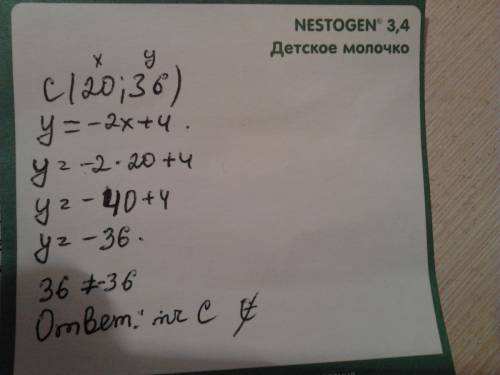 NESTOGEN® 3,4
Детское молочко
x y
C(20;36)
y = -2x+4.
y = -2·20+4
y = -40+4
y = -36.
36 ≠ -36
Ответ: т. C ∉